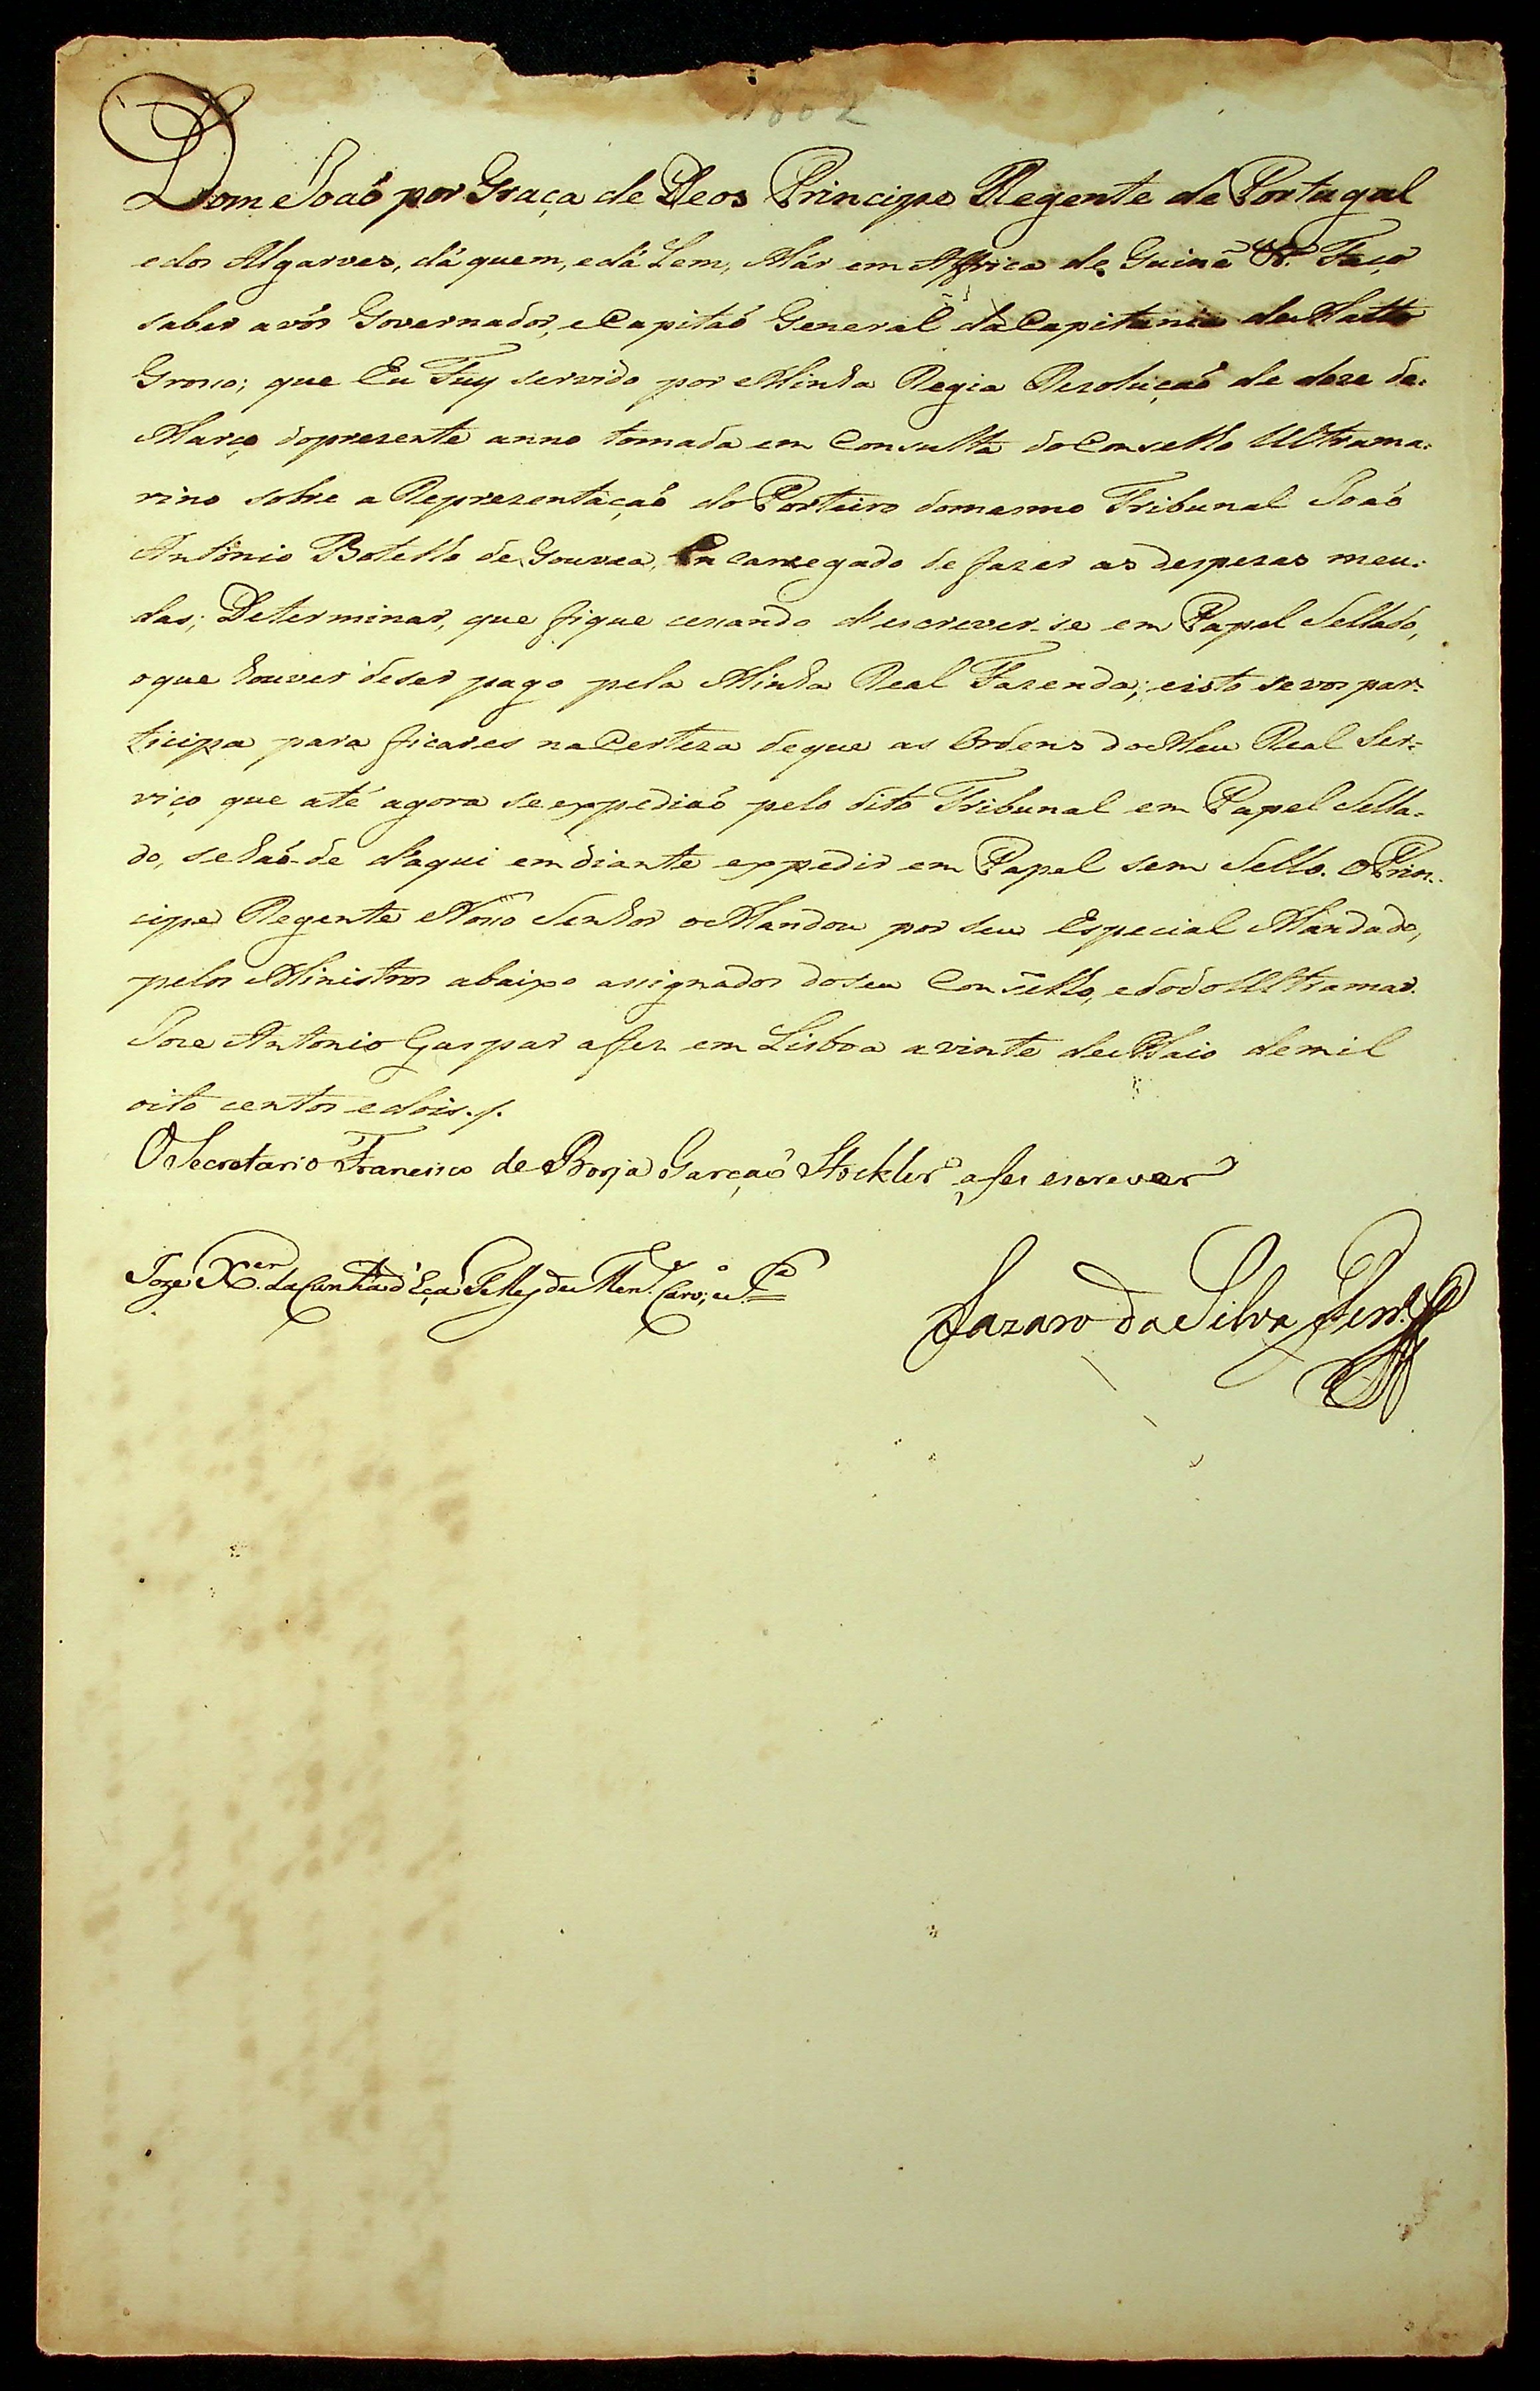 1802
Dom Joaõ por Graça de Deos Principe Regente de Portugal
e dos Algarves, dáquem, edáLem, Már em Affrica de Guiné &.ª Faço
saber avós Governador, eCapitaõ General da Capitania de Matto
Grosso; que Eu Fuy servido por Minha Regia Rezoluçaõ de doze de
Março dopresente anno tomada em Consulta do Conselho Ultrama=
rino sobre a Reprezentaçaõ do Porteiro domesmo Tribunal Joaõ
Antonio Botelho de Gouvea, Encarregado de fazer as despezas meu=
das; Determinar, que fique cessando d'escrever-se em Papel Sellado,
oque houver deser pago pela Minha Real Fazenda; eisto sevos par=
ticipa para ficares naCerteza deque as Ordens do Meu Real Ser=
viço que até agora seexpediaõ pelo dito Tribunal em Papel Sella=
do, sehaõ-de daqui emdiante expedir em Papel sem Sello. OPrin=
cipe Regente Nosso Senhor oMandou por seu Especial Mandado,
pelos Ministros abaixo assignados doseu Conselho, edodoUltramar.
Joze Antonio Gaspar afez em Lisboa avinte deMaio demil
oito centos edois.
O Secretario Francisco de Borja Garçaõ Stockler afes escrever
Joze X.er da Cunha d'Eça Telles de Men.
Lazaro da Silva Ferr.ª